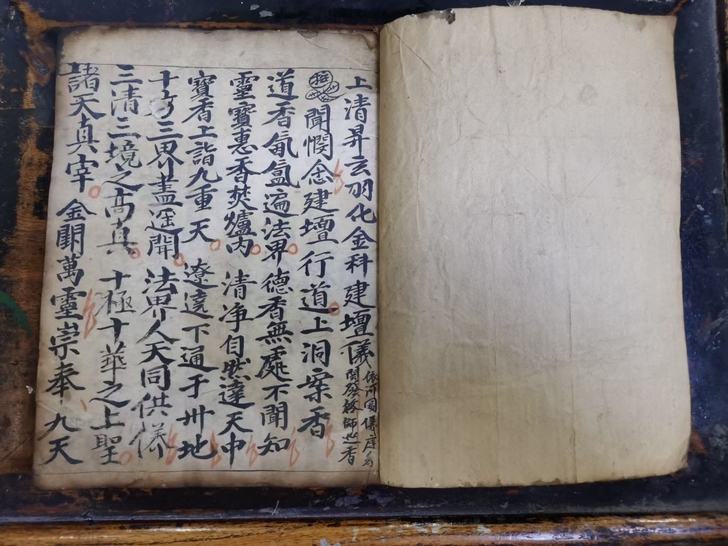 上清昇玄羽化金科建壇儀
聞憫念建壇行道上洞案香
道香氤氳遍法界德香無處不聞知
靈寶惠香焚爐內 清净自然達天中
寶香上詣九重天 遼遠下通于卅地
十方三界盡遥聞 法界人天同供養
三清三境之高真 十極十華之上聖
諸天真宰 金闕萬靈崇奉 九天